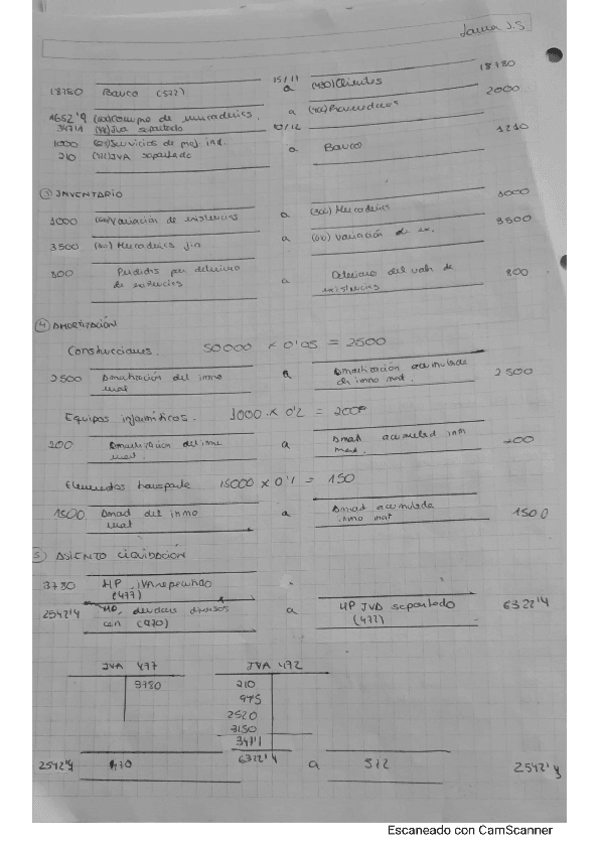 Laura J.S
15/11
18180 Banco (572) a (430) Clientes 18180
1652'9 (600) Compra de mercaderías. a (400) Proveedores 2000
347'1 (472) Iva soportado
10/12
1000 (607) Servicios de ind. a Banco 1210
210 (472) IVA soportado
③ INVENTARIO
3000 (610) Variación de existencias a (300) Mercaderías 3000
3500 (300) Mercaderías fin a (610) Variación de ex. 3500
800 Pérdidas por deterioro a Deterioro del valor de 800
de existencias existencias
④ AMORTIZACIÓN
Construcciones. 50000 x 0'05 = 2500
2500 Amortización del inmo a Amortización acumulada 2500
mat de inmo mat.
Equipos informáticos. 1000 x 0'2 = 200
200 Amortización del inmo a Amort acumulad inm 200
mat. mat.
Elementos transporte 15000 x 0'1 = 150
1500 Amort del inmo a Amort acumulada 1500
mat inmo mat
⑤ ASIENTO LIQUIDACIÓN
3780 HP IVA repercutido
(477)
2542'4 HP, deudora diversos a HP IVA soportado 6322'4
con (470) (472)
IVA 477 IVA 472
3780 210
945
2520
3150
347'1
6322'4
2542'4 470 a 572 2542'4
Escaneado con CamScanner